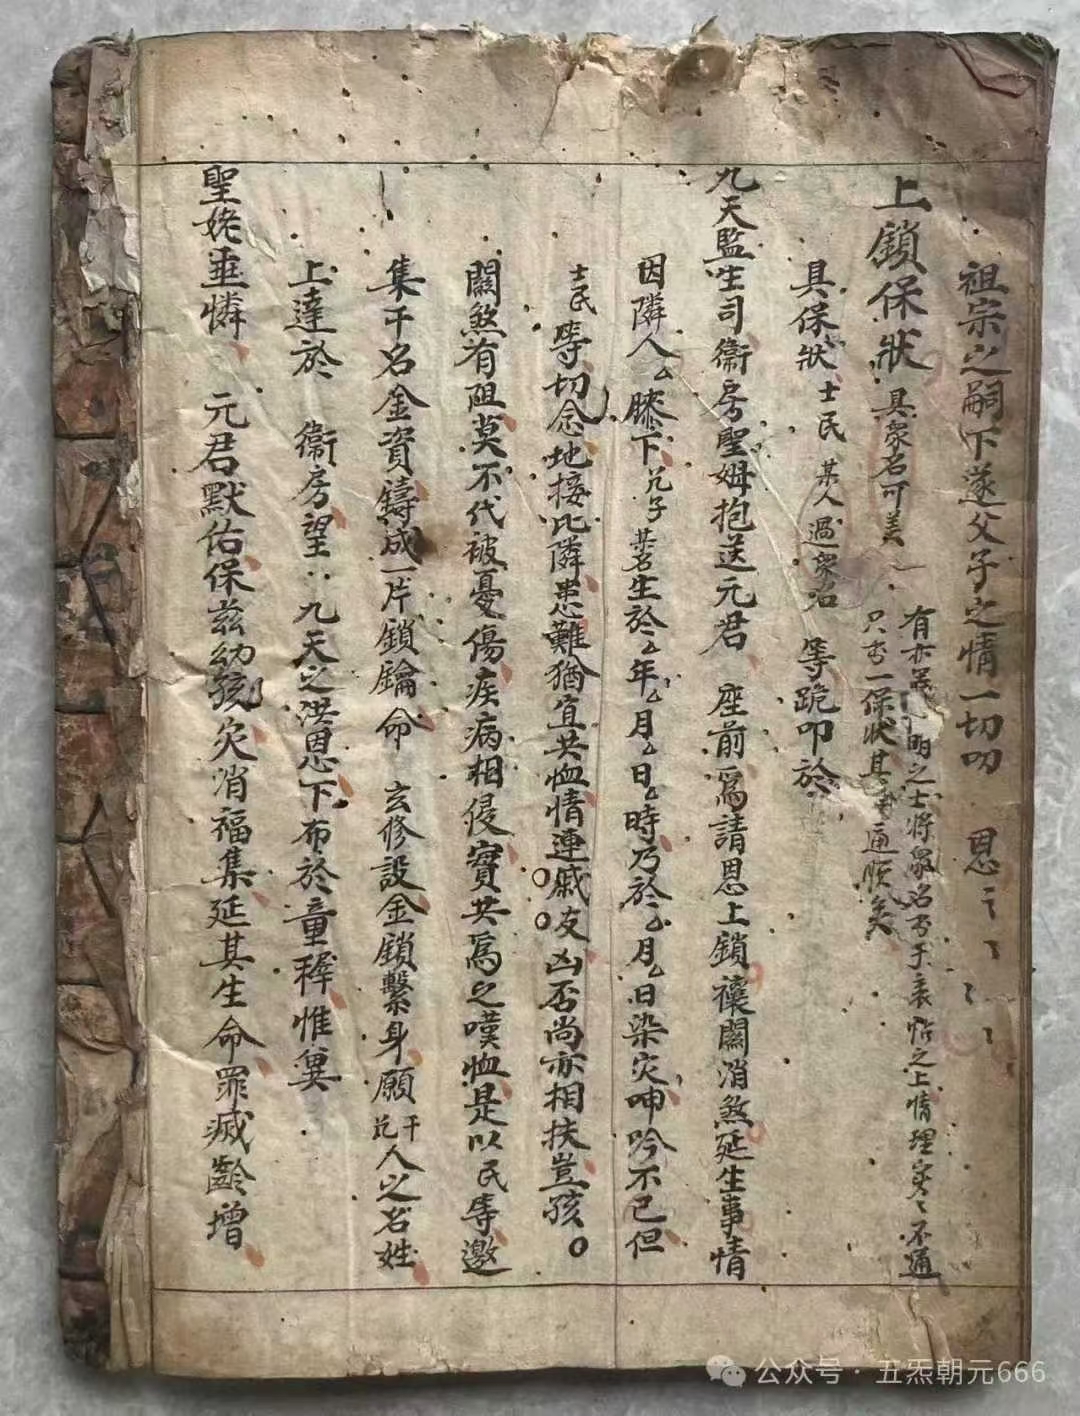 祖宗之嗣下遂父子之情一切叨　恩
上鎖保狀　具衆名可美
明之士將衆名
只書一保狀其
通順矣
之上情理実〻不通
具保狀士民某人過衆名等跪叩於
九天監生司衛房聖姆抱送元君　座前爲請恩上鎖禳關消煞延生事情
因隣人厶膝下兒子某名生於厶年厶月厶日厶時乃於厶月厶日染灾呻吟不已但
士民等切念地接比隣患難猶宜共恤情連戚友凶否尚亦相扶豈孩
關煞有阻莫不代被憂傷疾病相侵實共爲之嘆恤是以民等邀
集干名金資鑄成一片鎖鑰命　玄修設金鎖繫身願干人之名姓
上達於　衛房望九天之洪恩下布於童稺惟冀
聖姥垂憐　元君默佑保兹幼孩灾消福集延其生命罪滅齡增
公众号·丑炁朝元666